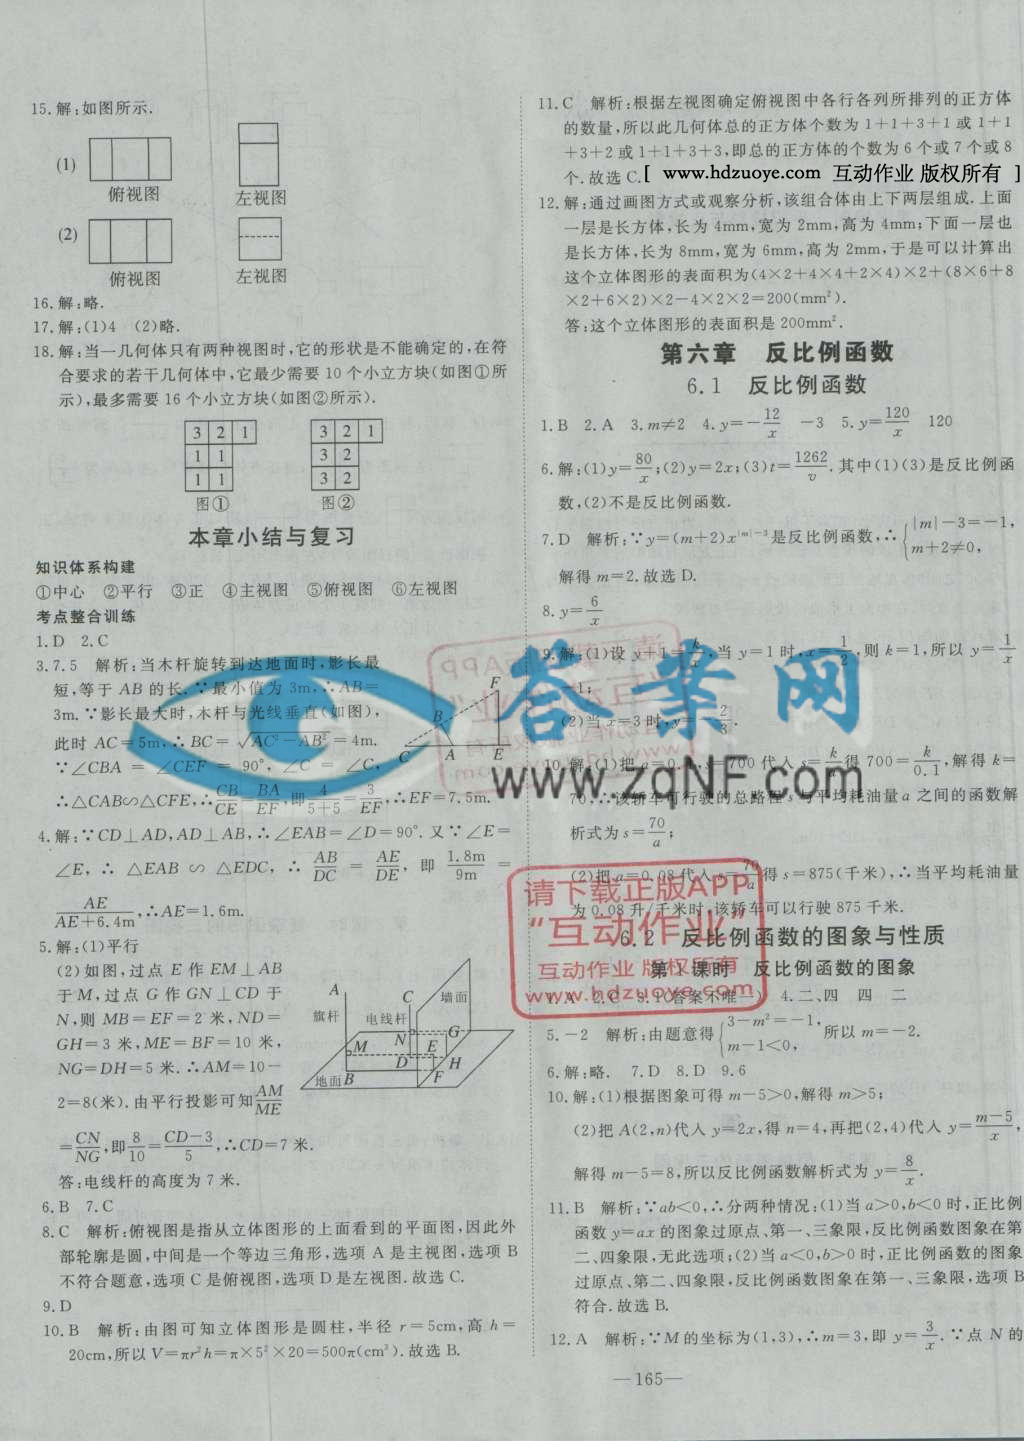 15.解:如图所示.
(1)
俯视图 左视图
(2)
俯视图 左视图
16.解:略.
17.解:(1)4 (2)略.
18.解:当一几何体只有两种视图时,它的形状是不能确定的,在符
合要求的若干几何体中,它最少需要 10 个小立方块(如图①所
示),最多需要 16 个小立方块(如图②所示).
3 2 1 3 2 1
1 1 3 2
1 1 3 2
图① 图②
本章小结与复习
知识体系构建
①中心 ②平行 ③正 ④主视图 ⑤俯视图 ⑥左视图
考点整合训练
1.D 2.C
3.7.5 解析:当木杆旋转到达地面时,影长最
短,等于 AB 的长.∵最小值为 3m,∴AB=
3m.∵影长最大时,木杆与光线垂直(如图),
此时 AC=5m,∴BC=√(AC²-AB²)=4m.
∵∠CBA=∠CEF=90°,∠C=∠C,
∴△CAB∽△CFE,∴CB/CE=BA/EF,即4/(5+5)=3/EF,∴EF=7.5m.
F
B
C A E
4.解:∵CD⊥AD,AD⊥AB,∴∠EAB=∠D=90°.又∵∠E=
∠E,∴△EAB∽△EDC,∴AB/DC=AE/DE,即1.8m/9m=
AE/(AE+6.4m),∴AE=1.6m.
5.解:(1)平行
(2)如图,过点 E 作 EM⊥AB
于 M,过点 G 作 GN⊥CD 于
N,则 MB=EF=2 米,ND=
GH=3 米,ME=BF=10 米,
NG=DH=5 米.∴AM=10-
2=8(米).由平行投影可知AM/ME
=CN/NG,即8/10=(CD-3)/5,∴CD=7 米.
答:电线杆的高度为 7 米.
A C 墙面
旗杆 电线杆
M N G
D E H
地面 B F
6.B 7.C
8.C 解析:俯视图是指从立体图形的上面看到的平面图,因此外
部轮廓是圆,中间是一个等边三角形,选项 A 是主视图,选项 B
不符合题意,选项 C 是俯视图,选项 D 是左视图.故选 C.
9.D
10.B 解析:由图可知立体图形是圆柱,半径 r=5cm,高 h=
20cm,所以 V=πr²h=π×5²×20=500π(cm³).故选 B.
11.C 解析:根据左视图确定俯视图中各行各列所排列的正方体
的数量,所以此几何体总的正方体个数为 1+1+3+1 或 1+1
+3+2 或 1+1+3+3,即总的正方体的个数为 6 个或 7 个或 8
个.故选 C.
[ www.hdzuoye.com 互动作业 版权所有 ]
12.解:通过画图方式或观察分析,该组合体由上下两层组成.上面
一层是长方体,长为 4mm,宽为 2mm,高为 4mm;下面一层也
是长方体,长为 8mm,宽为 6mm,高为 2mm,于是可以计算出
这个立体图形的表面积为(4×2+4×4+2×4)×2+(8×6+8
×2+6×2)×2-4×2×2=200(mm²).
答:这个立体图形的表面积是 200mm².
第六章 反比例函数
6.1 反比例函数
1.B 2.A 3.m≠2 4.y=-12/x -3 5.y=120/x 120
6.解:(1)y=80/x;(2)y=2x;(3)t=1262/v.其中(1)(3)是反比例函
数,(2)不是反比例函数.
7.D 解析:∵y=(m+2)x^(|m|-3)是反比例函数,∴{|m|-3=-1,
m+2≠0,
解得 m=2.故选 D.
8.y=6/x
9.解:(1)设 y+1=k/x,当 y=1 时,x=1/2,则 k=1,所以 y=1/x
-1;
(2)当 x=3 时,y=-2/3.
10.解:(1)把 a=0.1,s=700 代入 s=k/a得 700=k/0.1,解得 k=
70,∴该轿车可行驶的总路程 s 与平均耗油量 a 之间的函数解
析式为 s=70/a;
(2)把 a=0.08 代入 s=70/a得 s=875(千米),∴当平均耗油量
为 0.08 升/千米时,该轿车可以行驶 875 千米.
6.2 反比例函数的图象与性质
第 1 课时 反比例函数的图象
1.A 2.C 3.1(答案不唯一) 4.二、四 四 二
5.-2 解析:由题意得{3-m²=-1,
m-1<0,
所以 m=-2.
6.解:略. 7.D 8.D 9.6
10.解:(1)根据图象可得 m-5>0,解得 m>5;
(2)把 A(2,n)代入 y=2x,得 n=4,再把(2,4)代入 y=(m-5)/x,
解得 m-5=8,所以反比例函数解析式为 y=8/x.
11.B 解析:∵ab<0,∴分两种情况:(1)当 a>0,b<0 时,正比例
函数 y=ax 的图象过原点、第一、三象限,反比例函数图象在第
二、四象限,无此选项;(2)当 a<0,b>0 时,正比例函数的图象
过原点、第二、四象限,反比例函数图象在第一、三象限,选项 B
符合.故选 B.
12.A 解析:∵M 的坐标为(1,3),∴m=3,即 y=3/x.∵点 N 的
—165—
答案网
www.zqNF.com
请下载正版APP
“互动作业”
互动作业 版权所有
www.hdzuoye.com